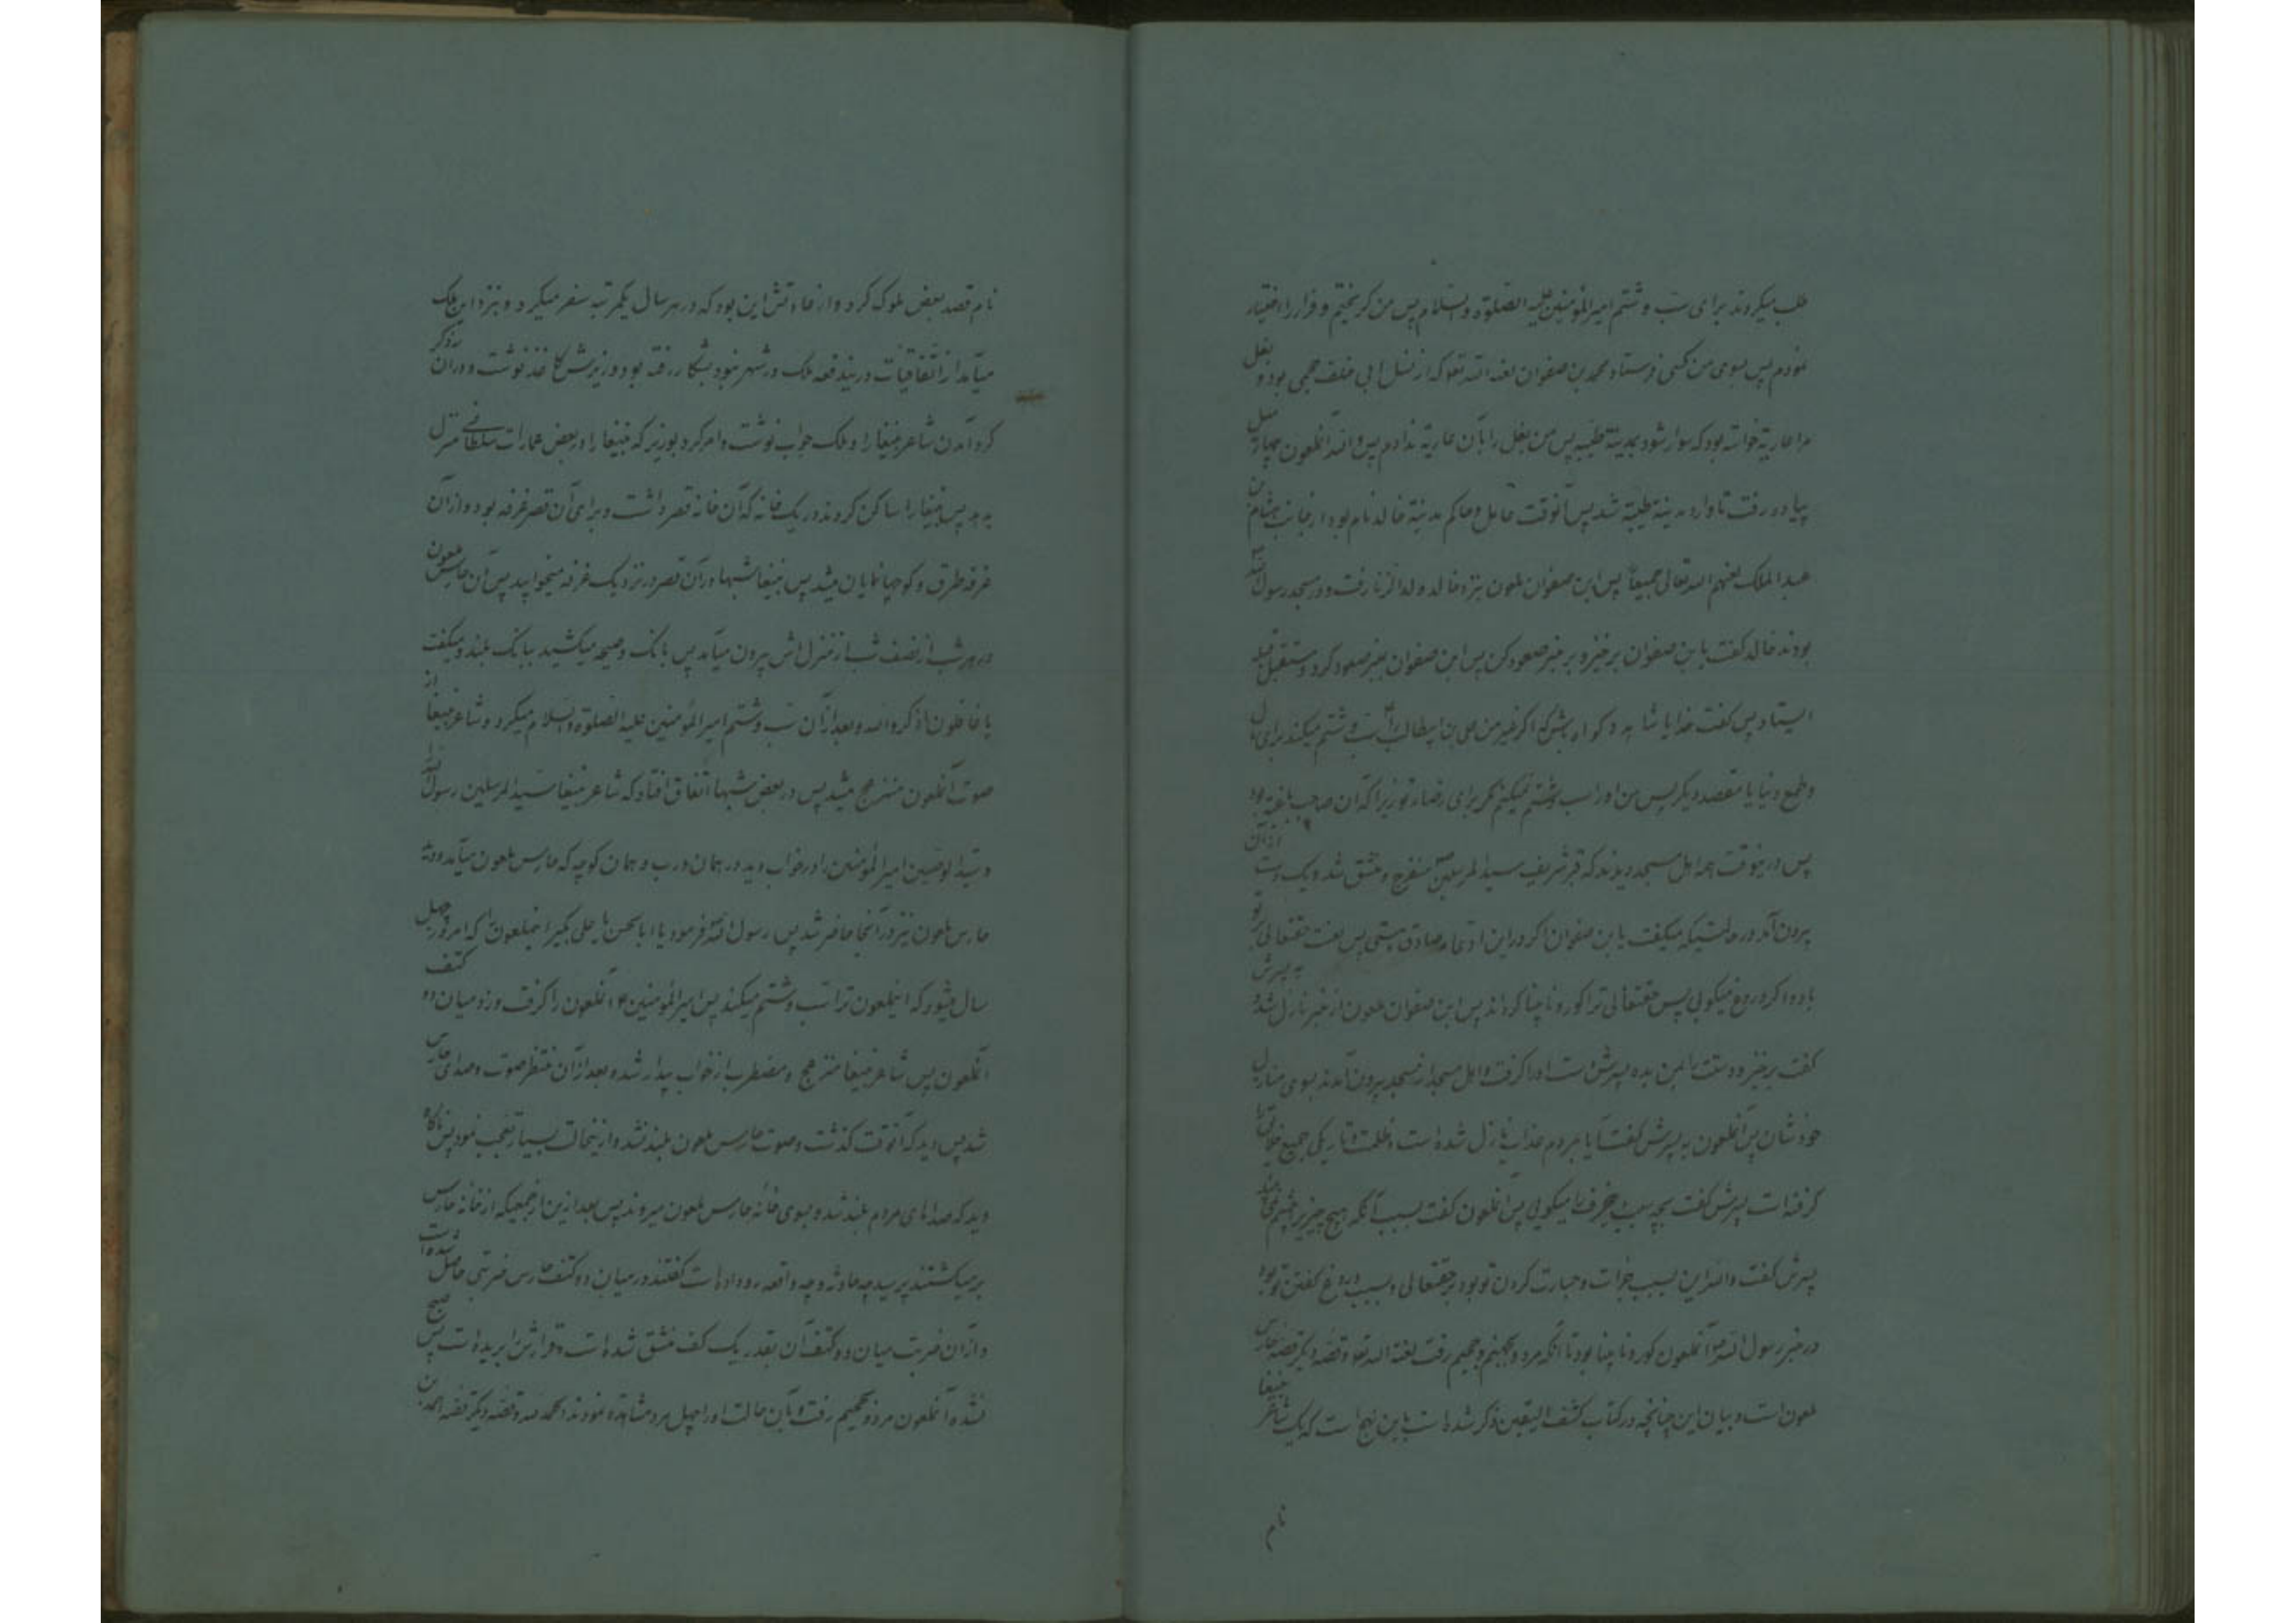 طلب میکردند برای سب و شتم امیرالمؤمنین علیه الصلوة والسلام پس من کریختم و فرار را اختیار
نمودم پس بسوی من کسی فرستاد محمد بن صفوان لعنه الله تعا که از نسل ابی خلف جمحی بود و بغل
مرا عاریة خواسته بود که سوار شود بمدینة طیبه پس من بغل را بآن عاریة ندادم پس والله آنملعون چهار میل
پیاده رفت تا وارد مدینة طیبة شد پس آنوقت عامل و حاکم مدینة خالد نام بود از جانب هشام بن
عبدالملک لعنهم الله تعالی جمیعاً پس ابن صفوان ملعون بنزد خالد ولد الزنا رفت و در مسجد رسول الله
بودند خالد کفت بابن صفوان برخیز و بر منبر صعود کن پس ابن صفوان بمنبر صعود کرد و مستقبل قبله
ایستاد پس کفت خدایا شاهد و کواه باش که اکر غیر من علی بن ابیطالب را سب و شتم میکند برای مال
و طمع دنیا یا مقصد دیکر پس من او را سب و شتم نمیکنم مکر برای رضاء تو زیرا که آن صاحب بود
پس در اینوقت همه اهل مسجد دیدند که قبر شریف سید المرسلین منفرج و منشق شد و یک دست از آن
بیرون آمد در حالتیکه میکفت یا بن صفوان اکر در این ادعا صادق هستی پس لعنت حقتعالی بر تو
باد و اکر دروغ میکویی پس حقتعالی ترا کور و نابینا کرداند پس ابن صفوان ملعون از منبر نازل شد و به پسرش
کفت برخیز و دستت بمن بده پسرش دست او را کرفت و اهل مسجد از مسجد بیرون آمدند بسوی منازل
خودشان پس آنملعون به پسرش کفت آیا بمردم عذاب نازل شده است و ظلمت و تاریکی جمیع خلایق را
کرفته است پسرش کفت بچه سبب این حرفها میکویی پس آنملعون کفت بسبب آنکه هیچ چیز بچشم
پسرش کفت والله این بسبب جرات و جسارت کردن تو بود بر حقتعالی و بسبب دروغ کفتن تو بود
در منبر رسول الله پس آنملعون کور و نابینا بود تا آنکه مرد و بجهنم و جحیم رفت لعنة الله تعا و قصه دیکر قصه حارس
ملعون است و بیان این چنانچه در کتاب کشف الیقین ذکر شده است باین نهج است که یک شاعر ببغا
نام
نام قصد بعض ملوک کرد و از عادتش این بود که در هر سال یکمرتبه سفر میکرد و بنزد این ملک
میآمد از اتفاقیات در ایندفعه ملک در شهر نبود بشکار رفته بود وزیرش کاغذ نوشت و در آن ذکر
کرد آمدن شاعر ببغا را و ملک جواب نوشت و امر کرد بوزیر که ببغا را در بعض عمارات سلطانی منزل
بدهد پس ببغا را ساکن کردند در یک خانه که آن خانه قصر داشت و برای آن قصر غرفه بود و از آن
غرفه طرق و کوچها نمایان میشد پس ببغا شبها در آن قصر در نزدیک غرفه میخوابید پس آن حارس ملعون
در هر شب از نصف شب از منزل اش بیرون میآمد پس بانک و صیحه میکشید ببانک بلند و میکفت
یا غافلون اذکروا الله و بعد از آن سب و شتم امیرالمؤمنین علیه الصلوة والسلام میکرد و شاعر ببغا از
صوت آنملعون منزعج میشد پس در بعض شبها اتفاق افتاد که شاعر ببغا سید المرسلین رسول الله
و سید الوصیین امیرالمؤمنین را در خواب دید در همان درب و همان کوچه که حارس ملعون میآمد و
حارس ملعون نیز در آنجا حاضر شد پس رسول الله فرمود یا ابا الحسن یا علی بکیر اینملعون را که امروز چهل
سال میشود که اینملعون ترا سب و شتم میکند پس امیرالمؤمنین آنملعون را کرفت و زد میان دو کتف
آنملعون پس شاعر ببغا منزعج و مضطرب از خواب بیدار شد و بعد از آن منتظر صوت و صدای حارس
شد پس دید که آنوقت کذشت و صوت حارس ملعون بلند نشد و از اینحالت بسیار تعجب نمود پس ناکاه
دید که صداهای مردم بلند شد و بسوی خانه حارس ملعون میروند پس بعد از این از جمعیکه از خانه حارس
بر میکشتند پرسید چه حادثه و چه واقعه رو داده است کفتند در میان دو کتف حارس ضربتی حاصل شده است
و از آن ضربت میان دو کتف آن بقدر یک کف منشق شده است و قرارش بریده است پس صبح
نشده آنملعون مرد و بجحیم رفت و بآن حالت او را چهل مرد مشاهده نمودند الحمد لله و قصه دیکر قصه احمد بن